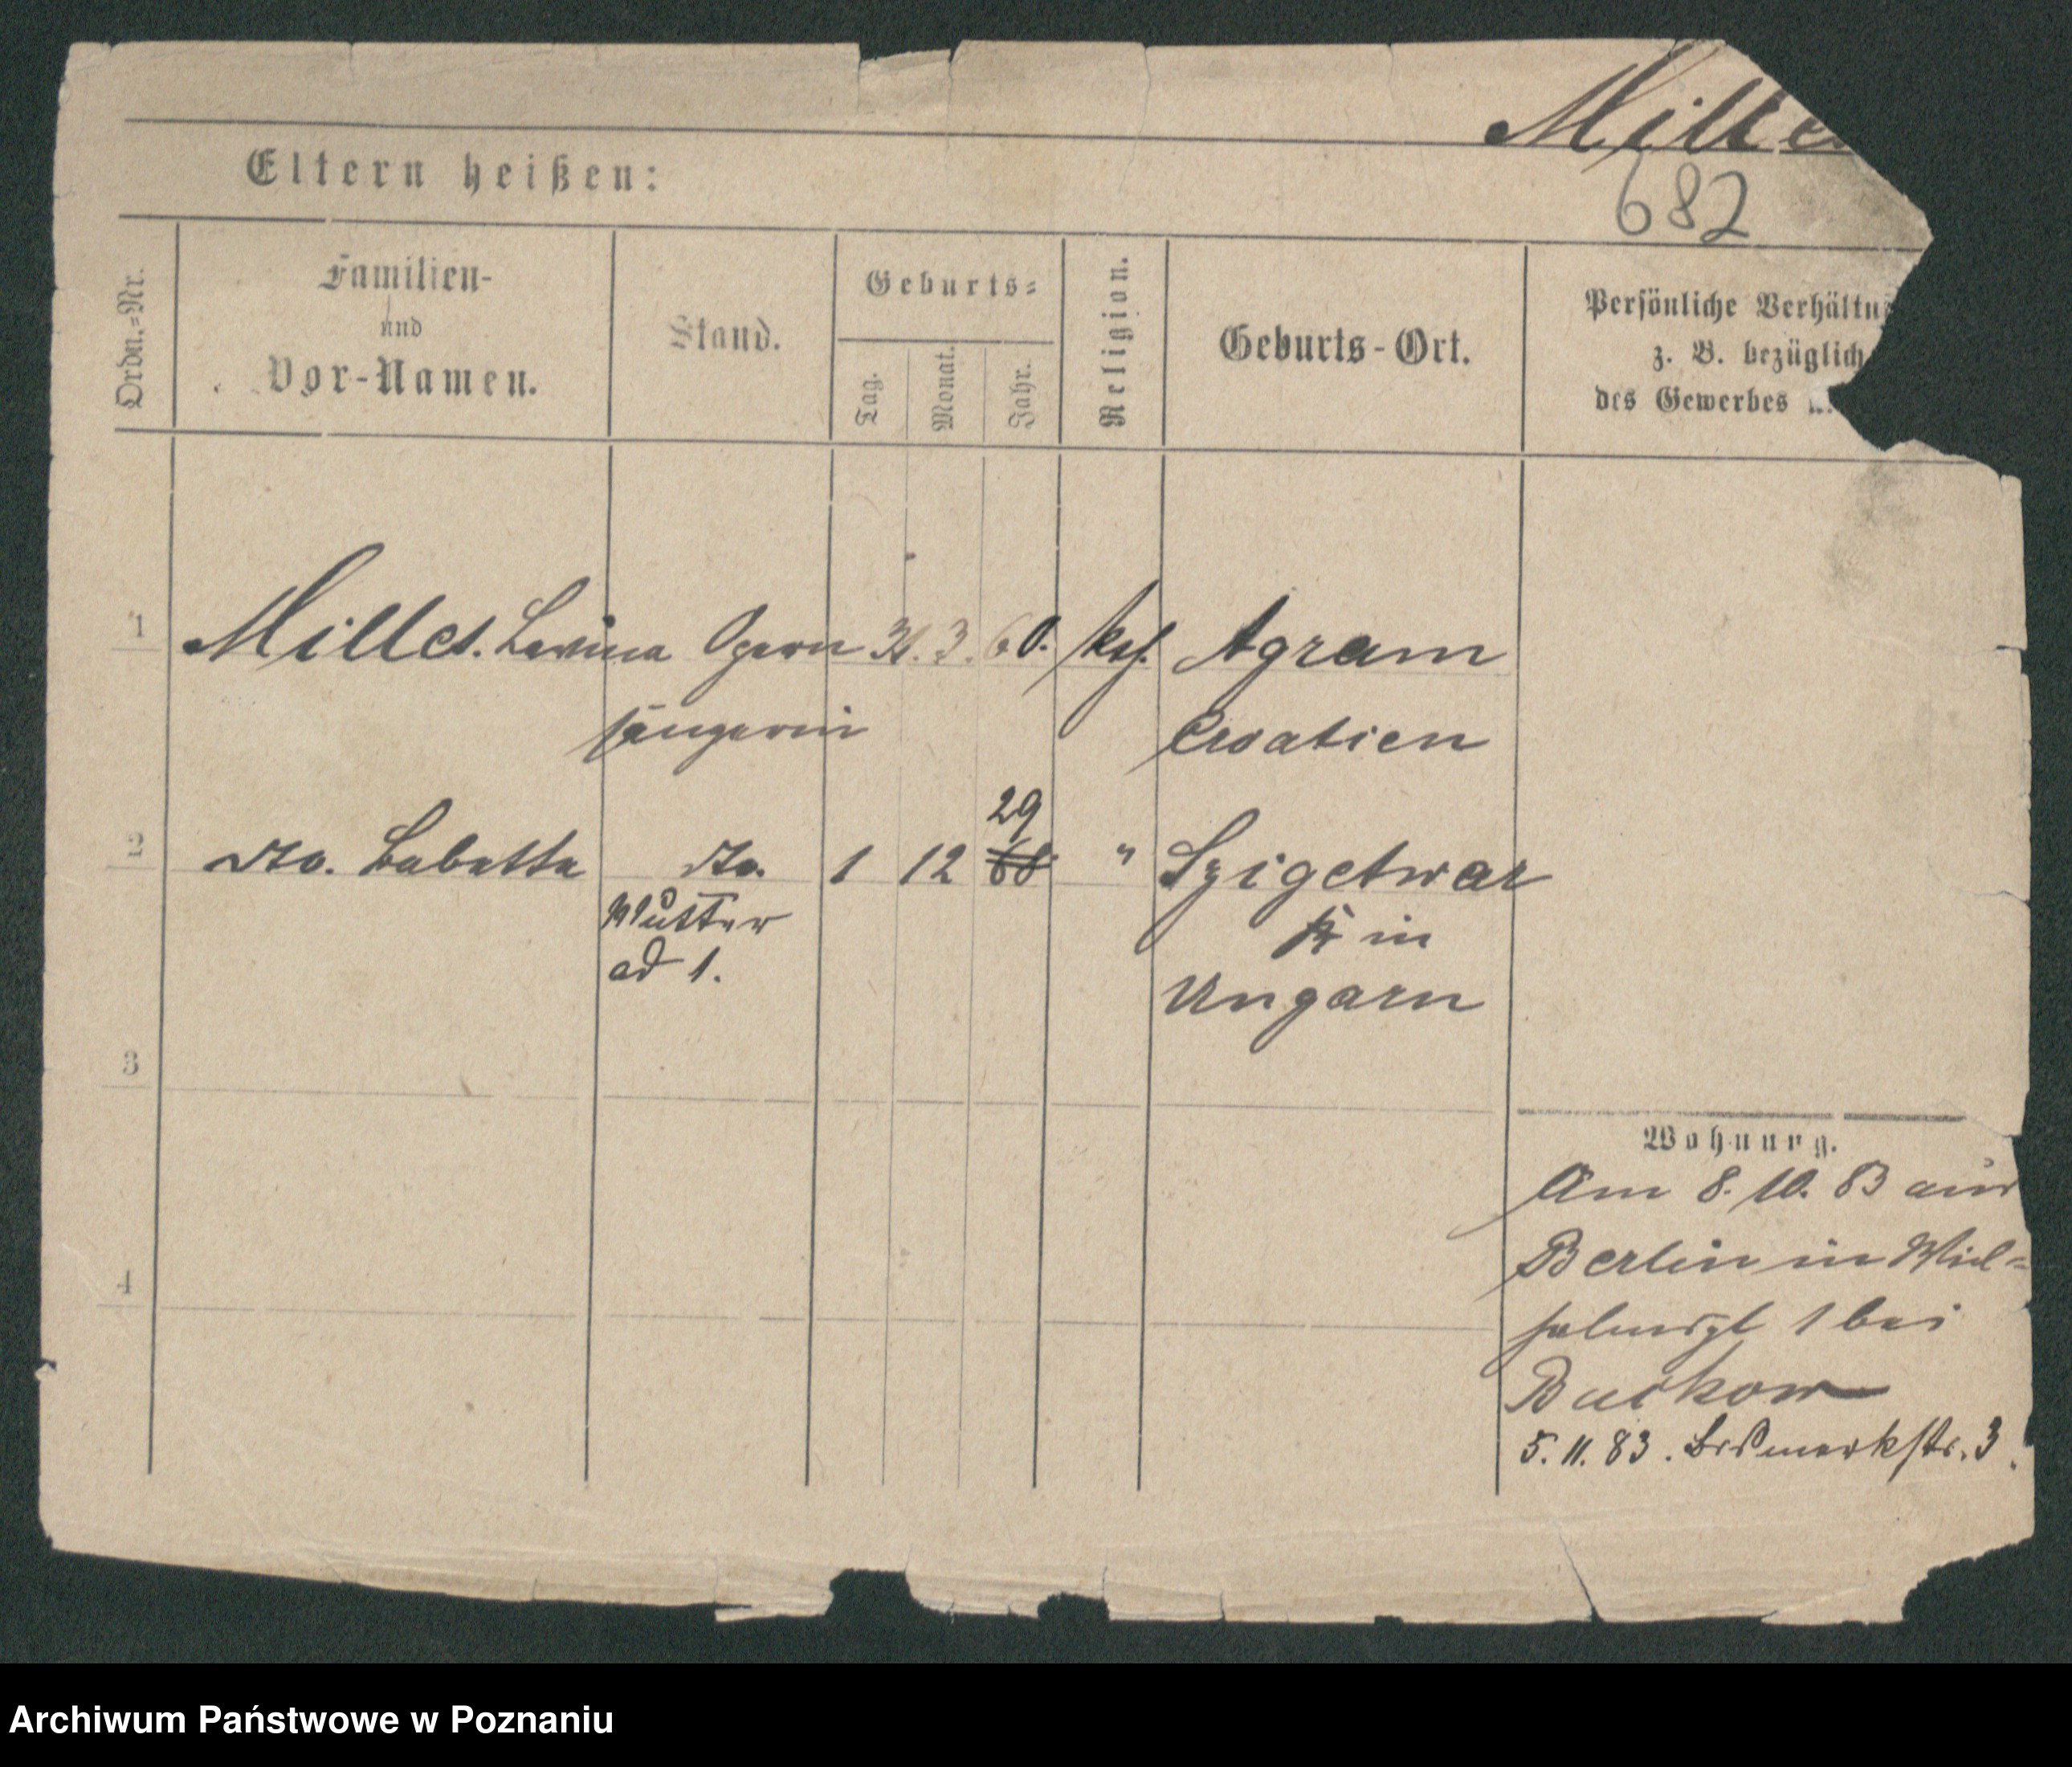 Mille
682
Eltern heißen:
Ordn.-Nr.
Familien-
und
Vor-Namen.
Stand.
Geburts-
Tag.
Monat.
Jahr.
Religion.
Geburts-Ort.
Persönliche Verhältn
z. B. bezüglich
des Gewerbes
1 Milles. Opern 31. 3. 60. kat. Agram
sängerin Croatien
29
2 dto. Babette dto. 1 12 68 " Szigetwar
Mutter in
ad 1. Ungarn
3
4
Wohnung.
Am 8. 10. 83 aus
Berlin in Wil-
helmspl 1 bei
Buckow
5. 11. 83. Bismarkstr. 3.
Archiwum Państwowe w Poznaniu